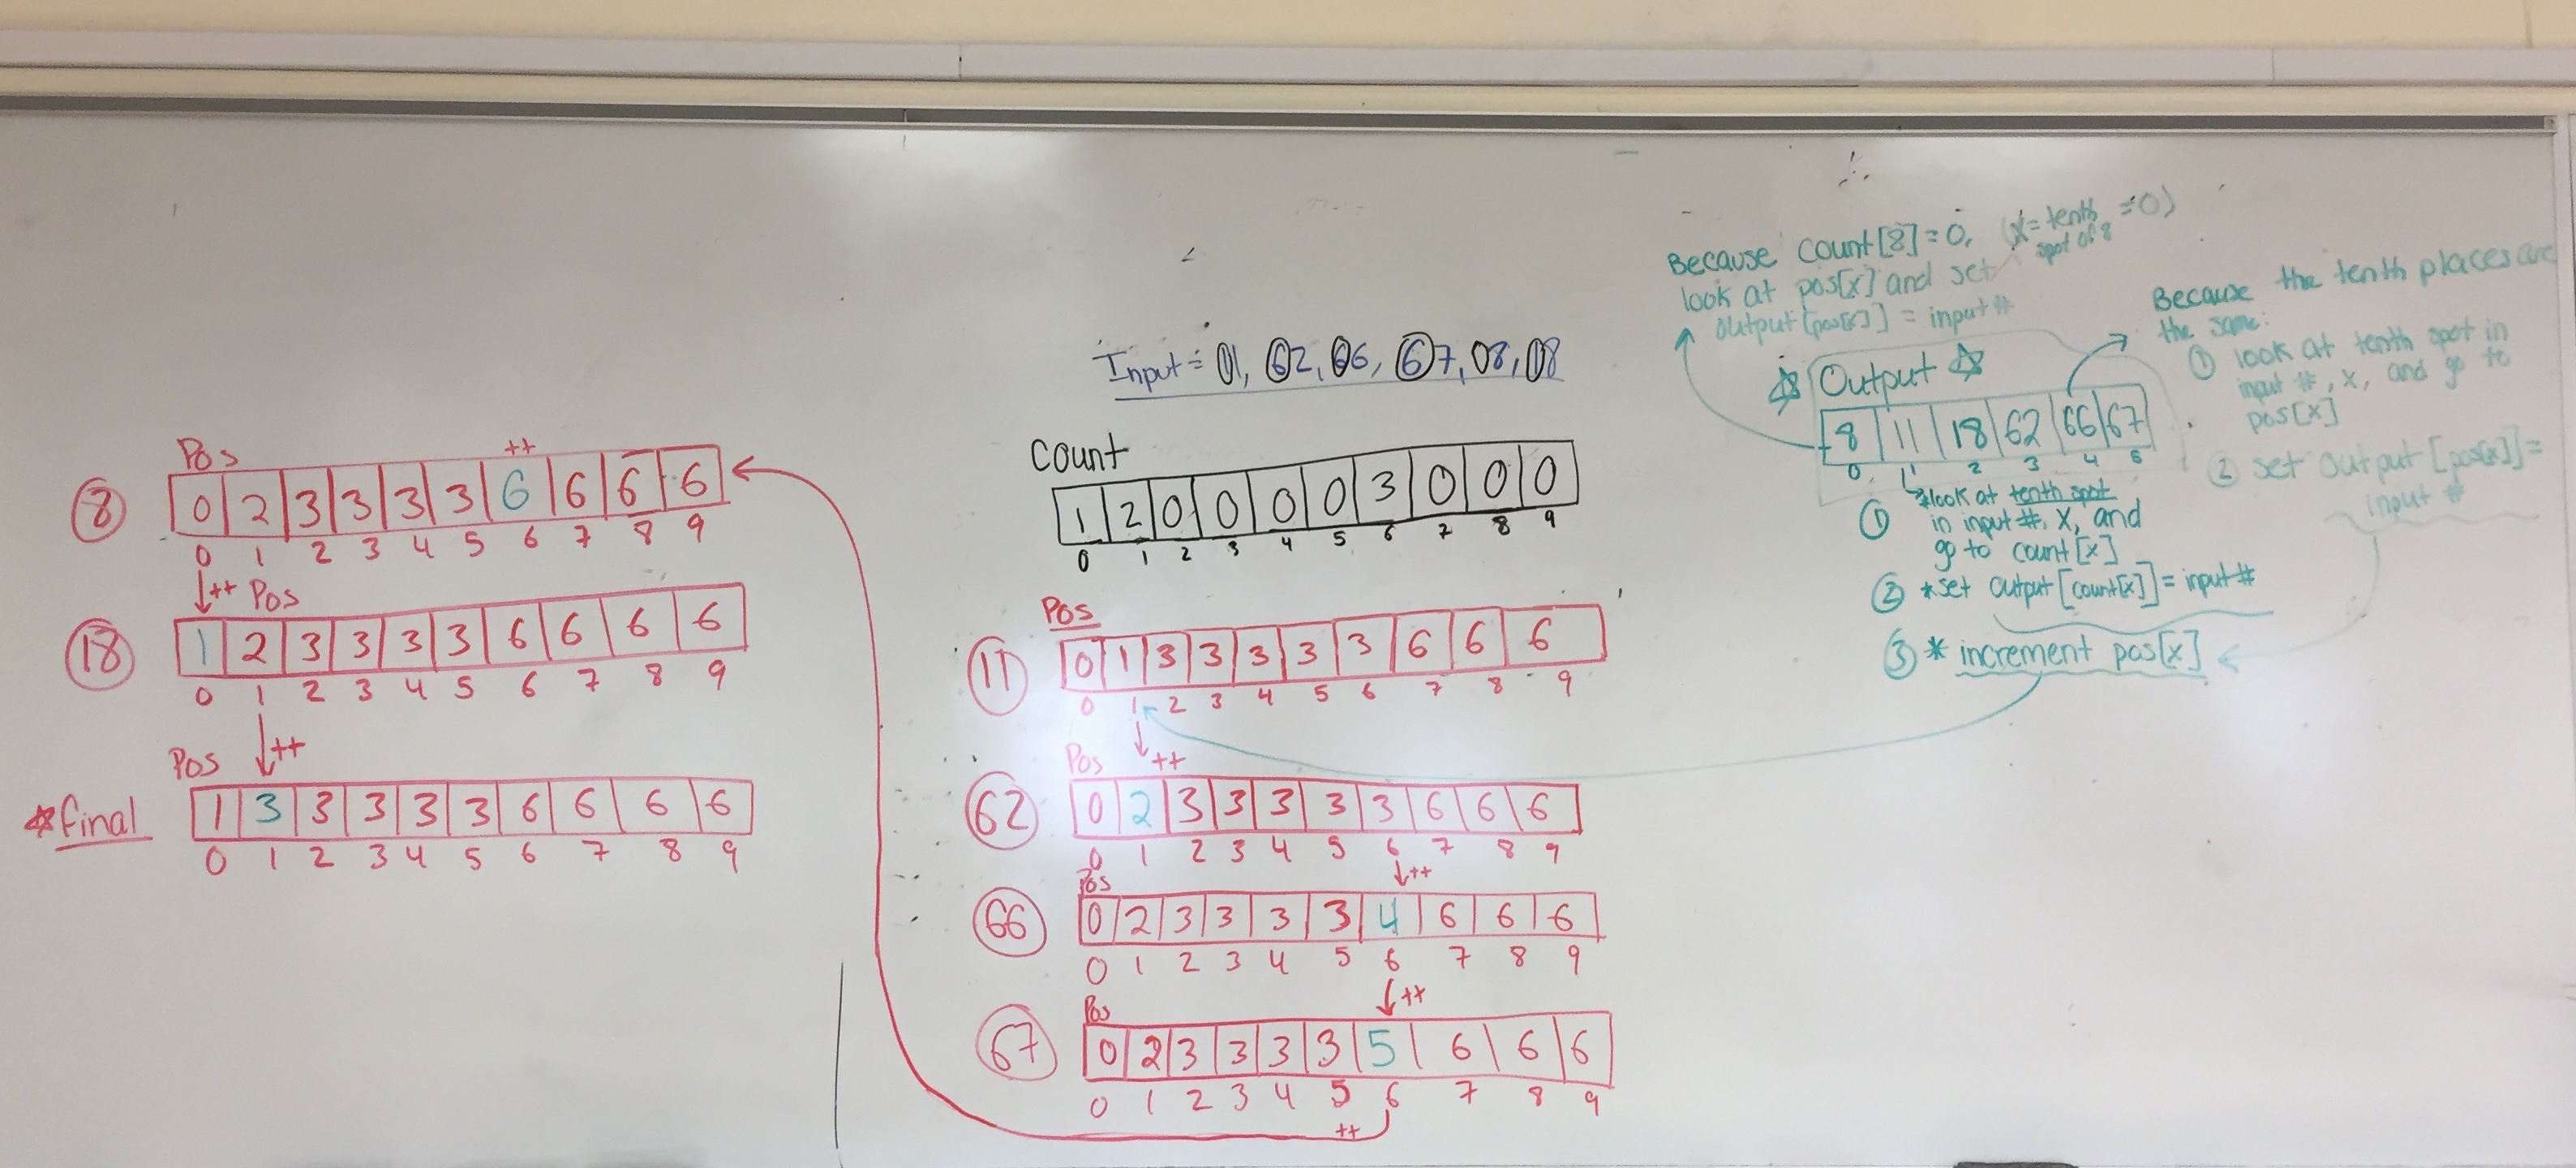 Pos
++
8
0 2 3 3 3 3 6 6 6 6
0 1 2 3 4 5 6 7 8 9
++ Pos
18
1 2 3 3 3 3 6 6 6 6
0 1 2 3 4 5 6 7 8 9
++
Pos
*final
1 3 3 3 3 3 6 6 6 6
0 1 2 3 4 5 6 7 8 9
Count
1 2 0 0 0 0 3 0 0 0
0 1 2 3 4 5 6 7 8 9
Pos
11
0 1 3 3 3 3 3 6 6 6
0 1 2 3 4 5 6 7 8 9
Pos ++
62
0 2 3 3 3 3 3 6 6 6
0 1 2 3 4 5 6 7 8 9
++
Pos
66
0 2 3 3 3 3 4 6 6 6
0 1 2 3 4 5 6 7 8 9
++
Pos
67
0 2 3 3 3 3 5 6 6 6
0 1 2 3 4 5 6 7 8 9
++
Because Count[8]=0, (x=tenth spot of 8 =0)
look at pos[x] and set
output[pos[x]] = input #
Output
8 11 18 62 66 67
0 1 2 3 4 5
① *look at tenth spot
in input #, X, and
go to count[x]
② *set output[count[x]]=input #
③ * increment pos[x]
Because the tenth places are
the same:
① look at tenth spot in
input #, x, and go to
pos[x]
② set output[pos[x]]=
input #